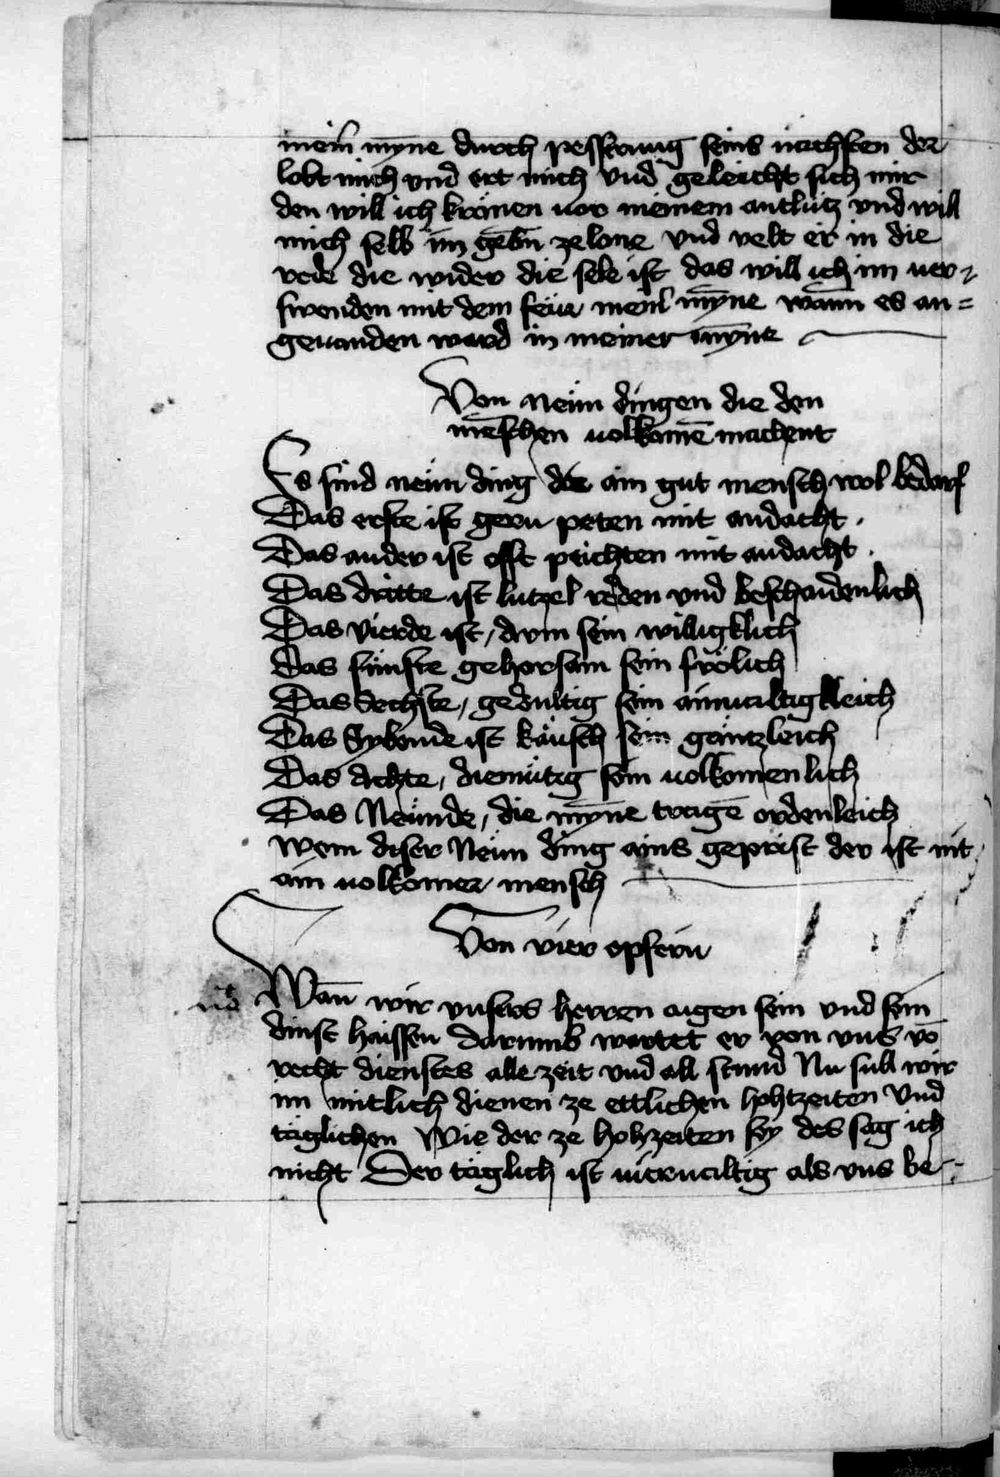 meiñ mỹne durch pessrung seins nachsten der
lobt mich vnd ert mich vnd geleicht sich mir
den will ich krönen uor meinem antlütz vnd will
mich selb im gebñ ze lone vnd velt er in die
rede die wider die sele ist das will ich im uer⸗
swenden mit dem feur meiñ mỹne wann es an=
geuanden ward in meiner mỹne
Von neün dingen die den
mēschen uolkomē machent
Es sind neün ding der ain gut mensch wol bedarf
Das erste ist gern peten mit andacht .
Das ander ist offt peichten mit andacht .
Das dritte ist lutzel reden vnd beschaidenlich
Das vierde ist / arm sein willigklich
Das fünfte gehorsam sein frölich
Das Sechste / gedultig sein ainualtigkleich
Das Sybende ist käusch sein gäntzleich
Das Achte / diemütig sein uolkomenlich
Das Neünde / die mỹne tragē ordenleich
Wem diser Neün ding ains gepräst der ist nit
ain uolkomer mensch
Von vier opfern
Wañ wir vnsers herren aigen sein vnd sein
dinst haissen darumb wartet er von vns vō
recht dienstes alle zeit vnd all stund Nu sull wir
im mitlich dienen ze ettlichen hohtzeiten Vnd
täglichen Wie der ze hohzeiten sy des sag ich
nicht Der täglich ist uierualtig als vns be⸗